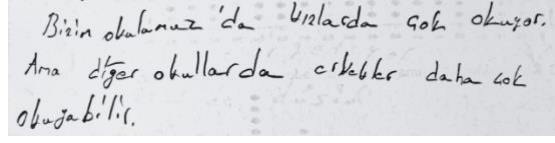 Bizim okulumuz'da kızlarda çok okuyor.
Ama diğer okullarda erkekler daha çok
okuyabilir.